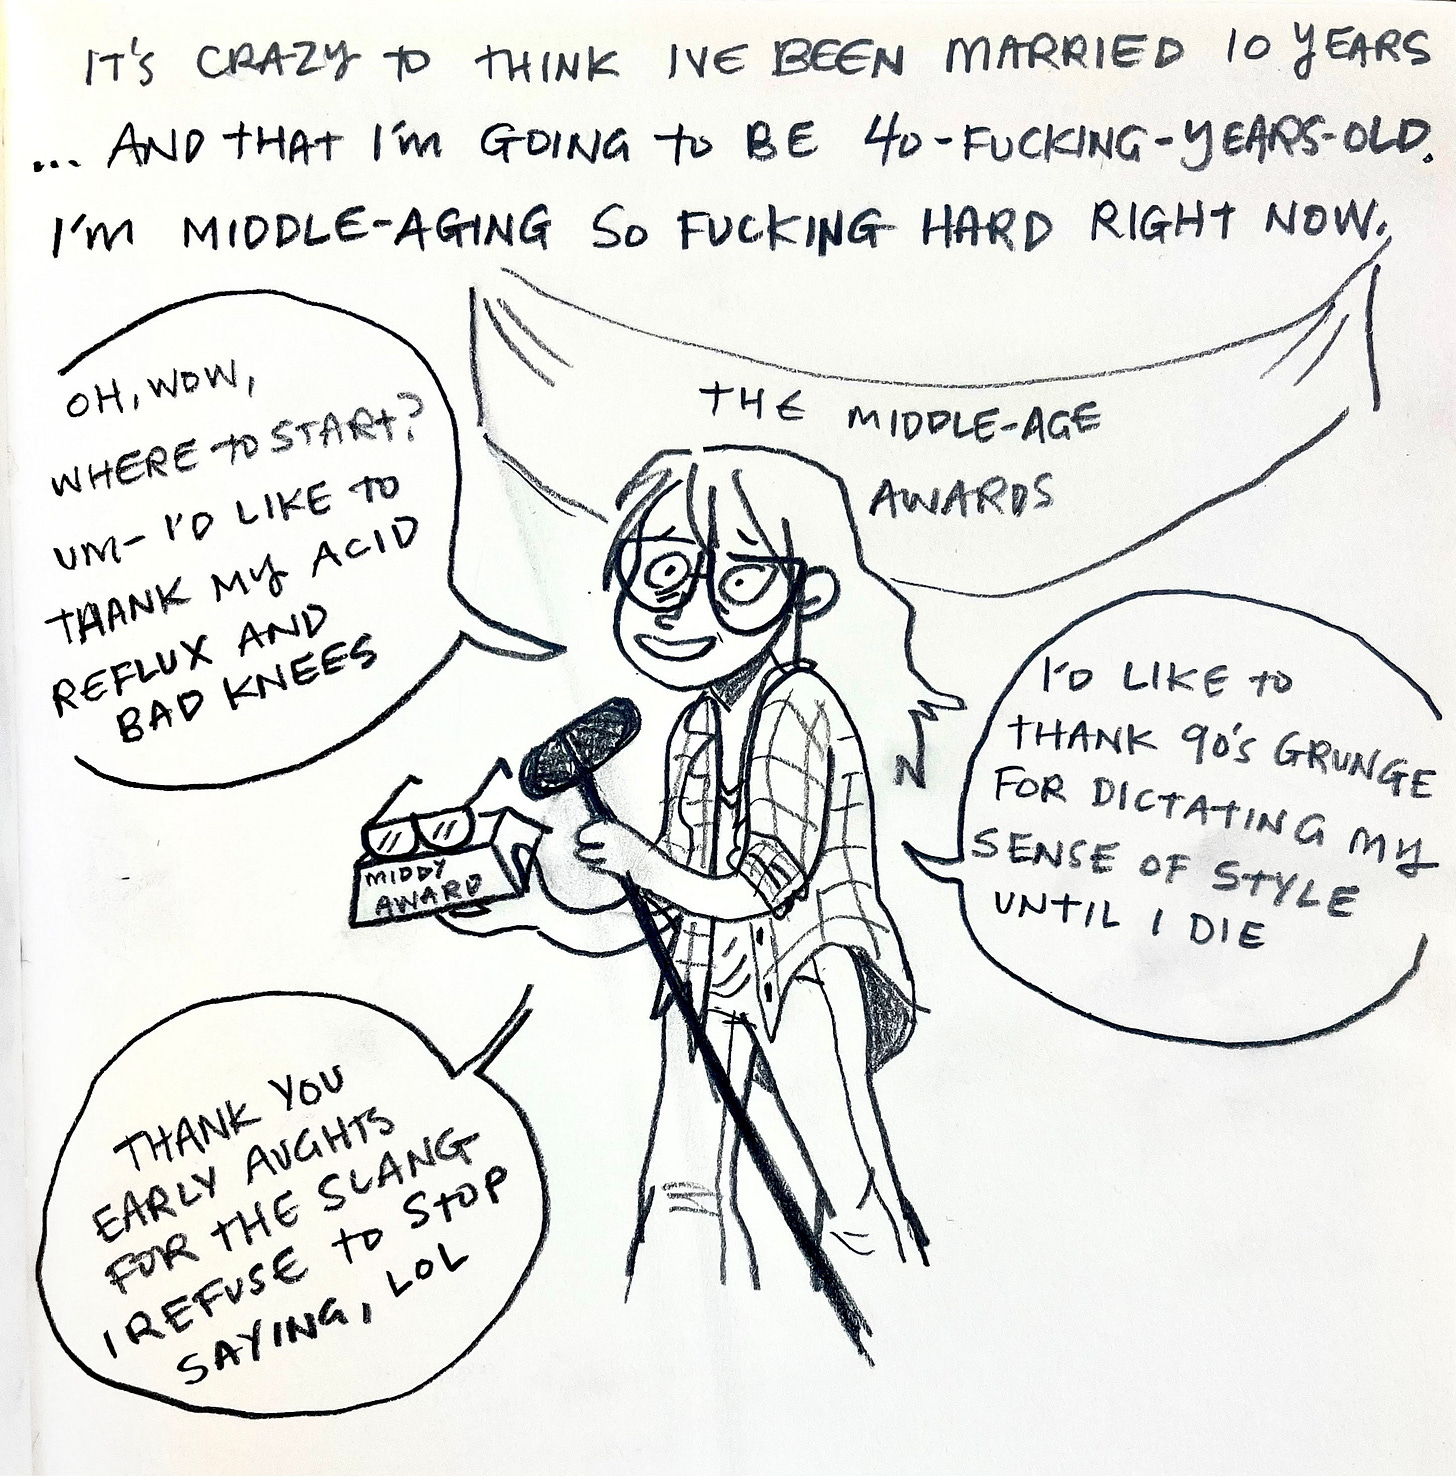 IT'S CRAZY TO THINK IVE BEEN MARRIED 10 YEARS
... AND THAT I'M GOING TO BE 40-FUCKING-YEARS-OLD.
I'M MIDDLE-AGING SO FUCKING HARD RIGHT NOW.
THE MIDDLE-AGE
AWARDS
OH, WOW,
WHERE TO START?
UM- I'D LIKE TO
THANK MY ACID
REFLUX AND
BAD KNEES
I'D LIKE TO
THANK 90'S GRUNGE
FOR DICTATING MY
SENSE OF STYLE
UNTIL I DIE
MIDDY
AWARD
THANK YOU
EARLY AUGHTS
FOR THE SLANG
I REFUSE TO STOP
SAYING, LOL